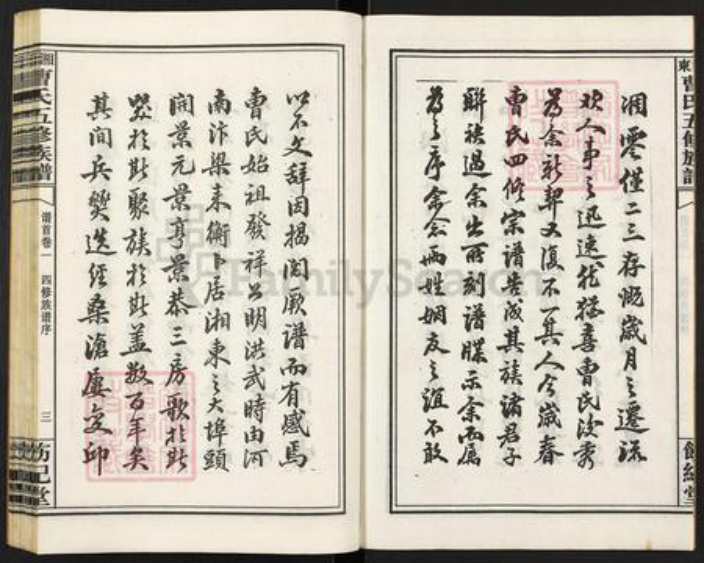 凋零僅二三存慨歲月之遷流
欣人事之迅速然猶喜曹氏後秀
為余新契又復不一其人今歲春
曹氏四修宗譜告成其族諸君子
聯袂過余出所刻譜牒示余而属
為之序余念两姓姻友之誼不敢
以不文辞因揭阅厥谱而有感焉
曹氏始祖發祥公明洪武時由河
南汴梁来衡卜居湘東之大埠頭
開景元景亨景恭三房歌於斯
哭於斯聚族於斯盖数百年矣
其間兵燹迭经桑滄屢変卭
曹氏五修族譜
谱首卷一
四修族谱序
三
東
曹氏五修族譜
FamilySearch